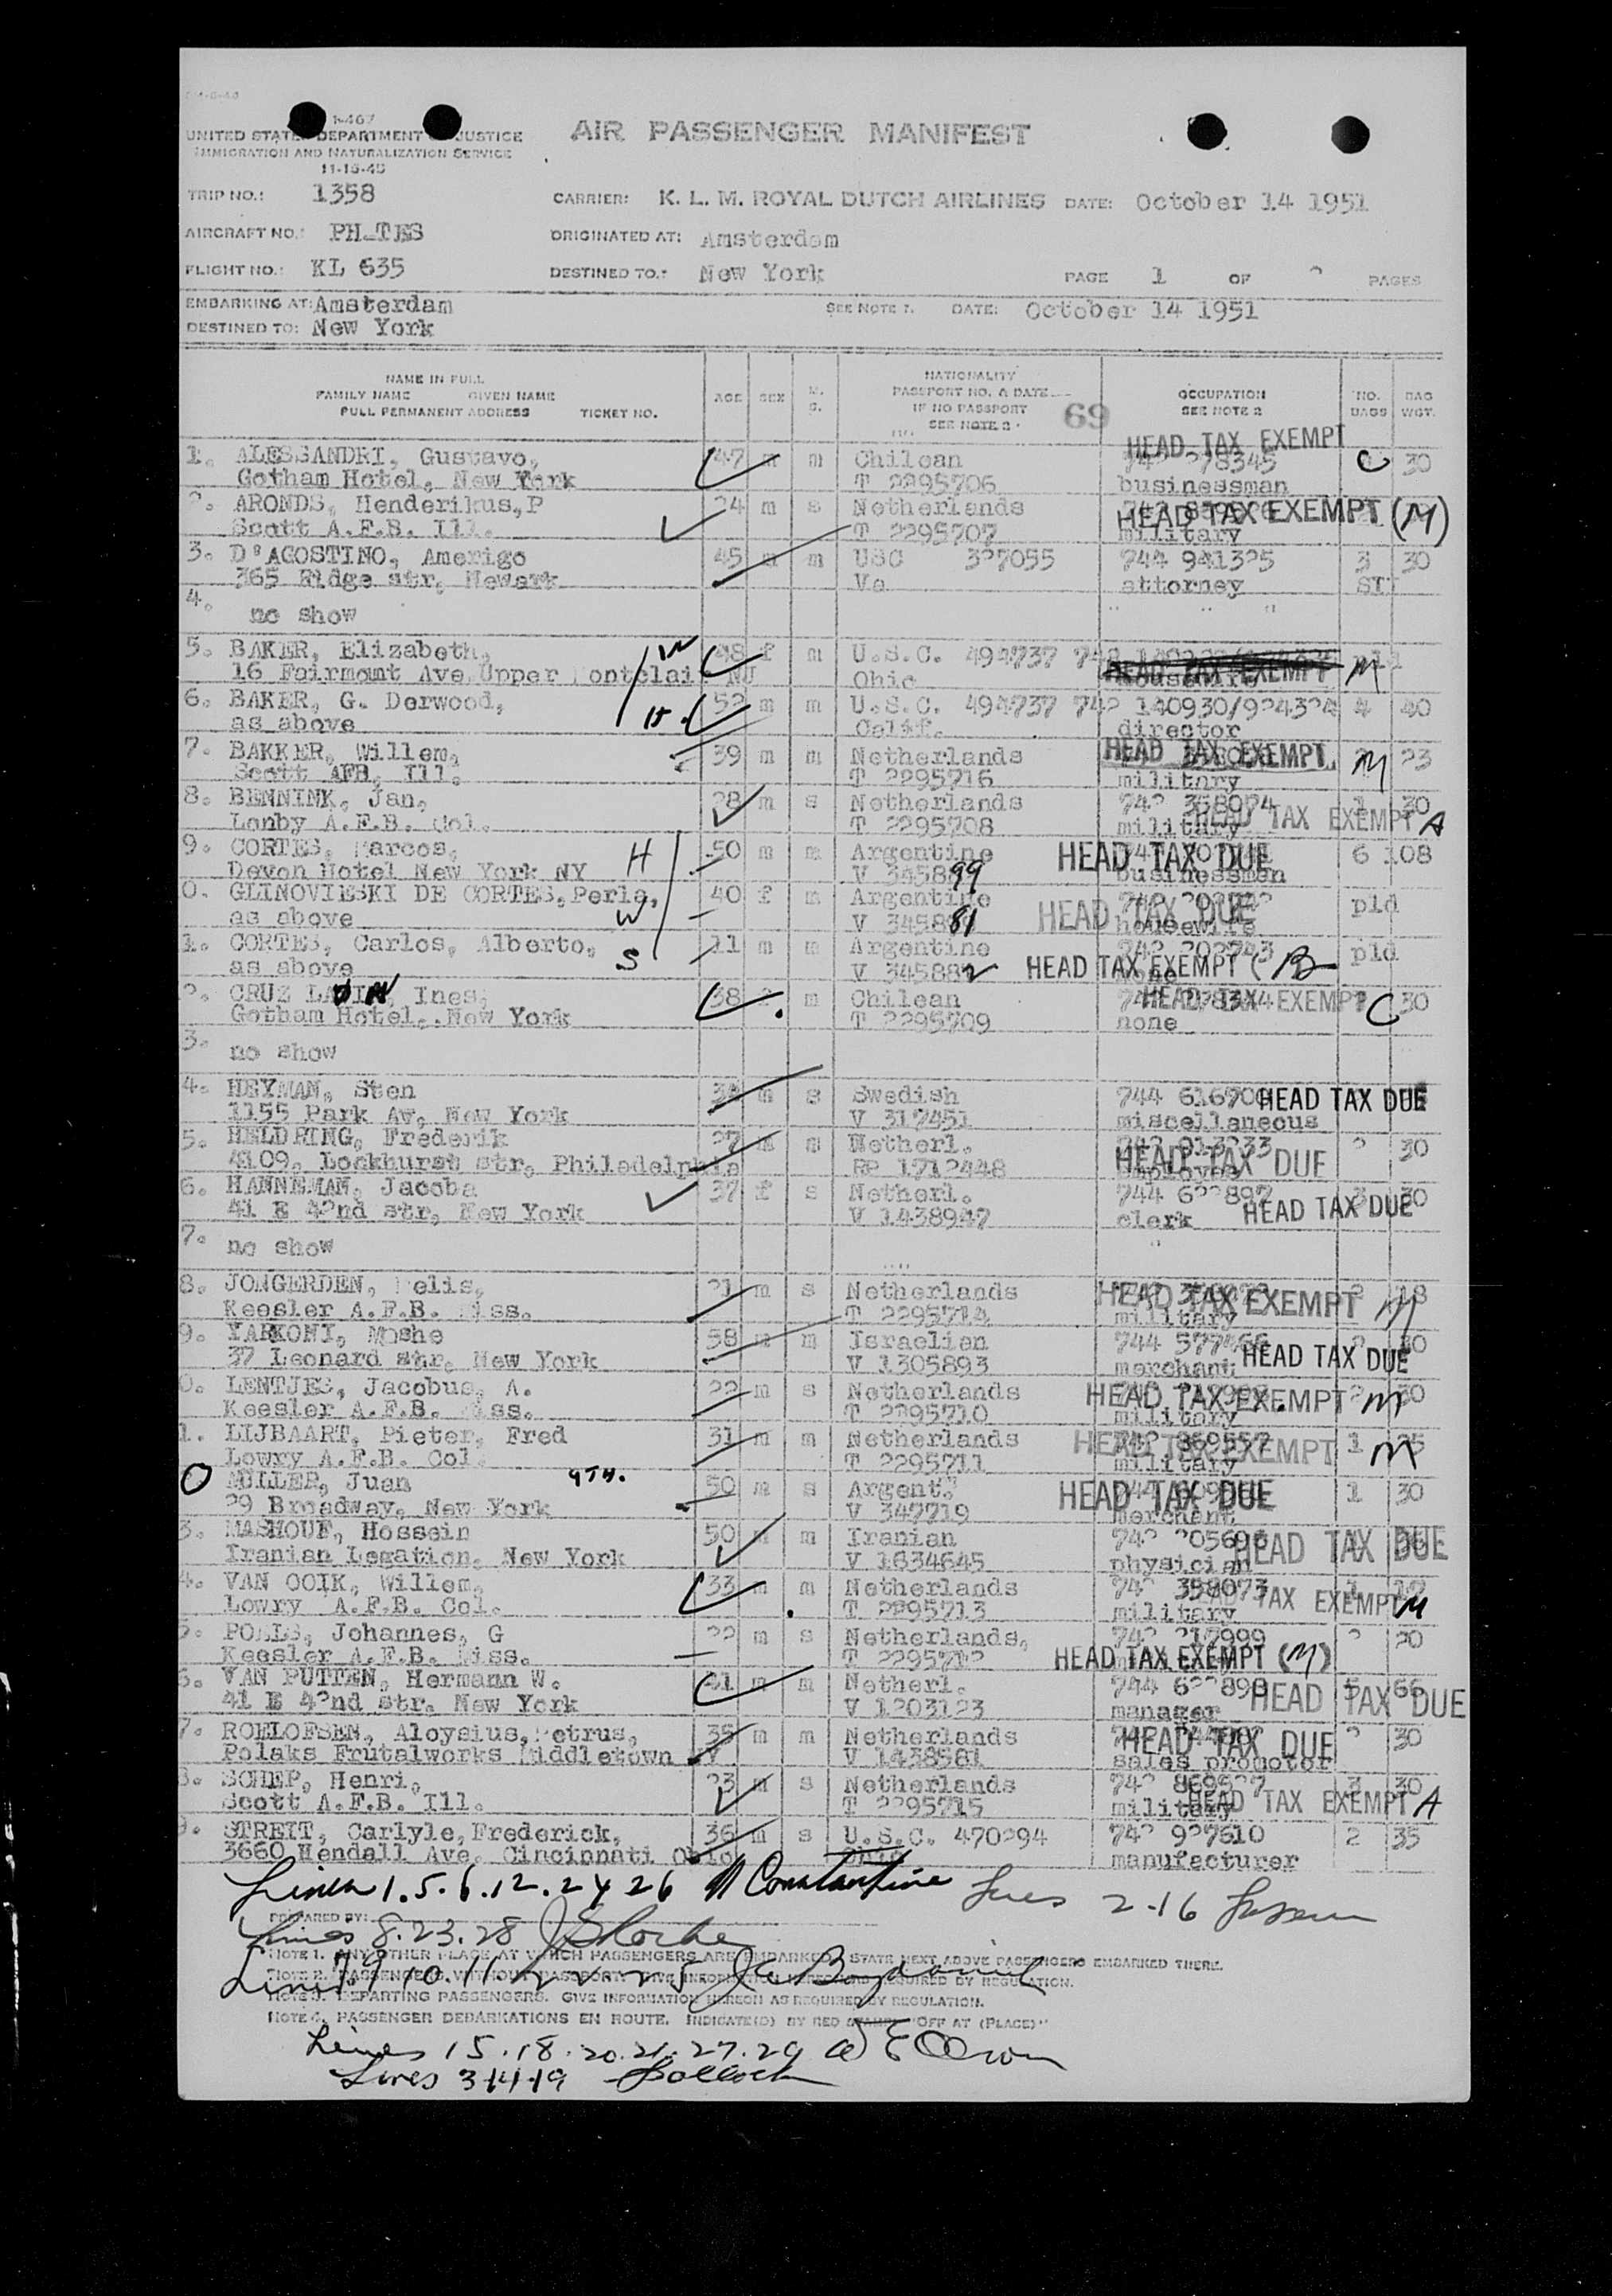 1-467
UNITED STATES DEPARTMENT OF JUSTICE
IMMIGRATION AND NATURALIZATION SERVICE
11-15-45
AIR PASSENGER MANIFEST
TRIP NO.: 1358 CARRIER: K. L. M. ROYAL DUTCH AIRLINES DATE: October 14 1951
AIRCRAFT NO.: PH-TES ORIGINATED AT: Amsterdam
FLIGHT NO.: KL 635 DESTINED TO.: New York PAGE 1 OF PAGES
EMBARKING AT: Amsterdam SEE NOTE 1. DATE: October 14 1951
DESTINED TO: New York
NAME IN FULL
FAMILY NAME GIVEN NAME
FULL PERMANENT ADDRESS TICKET NO. AGE SEX M. S. NATIONALITY PASSPORT NO. & DATE IF NO PASSPORT SEE NOTE 2 69 OCCUPATION SEE NOTE 2 NO. BAGS BAG WGT.
HEAD TAX EXEMPT
1. ALESSANDRI, Gustavo, 47 m m Chilean 742 278345 C 30
Gotham Hotel, New York T 2295706 businessman
2. ARONDS, Henderikus, P 24 m s Netherlands HEAD TAX EXEMPT (M)
Scott A.F.B. Ill. T 2295707 military
3. D'AGOSTINO, Amerigo 45 m m USC 327055 744 941325 3 30
365 Ridge str, Newark Va attorney
4. no show
5. BAKER, Elizabeth, W 48 f m U.S.C. 494737 742 pld
16 Fairmont Ave Upper Montclair NJ Ohio HEAD TAX EXEMPT housewife M
6. BAKER, G. Derwood, H 52 m m U.S.C. 494737 742 140930/924324 4 40
as above Calif. director
7. BAKKER, Willem, 39 m m Netherlands HEAD TAX EXEMPT M 23
Scott AFB, Ill. T 2295716 military
8. BENNINK, Jan, 28 m s Netherlands 742 358074 1 30
Lonby A.F.B. Col. T 2295708 military HEAD TAX EXEMPT A
9. CORTES, Marcos, H 50 m m Argentine HEAD TAX DUE 6 108
Devon Hotel New York NY V 345899 businessman
0. GLINOVIESKI DE CORTES, Perla, W 40 f m Argentine HEAD TAX DUE pld
as above V 345881 housewife
1. CORTES, Carlos, Alberto, S 11 m m Argentine 742 202743 pld
as above V 345882 HEAD TAX EXEMPT (B
2. CRUZ Ines, 38 f m Chilean HEAD TAX EXEMPT C 30
Gotham Hotel, New York T 2295709 none
3. no show
4. HEYMAN, Sten 34 m s Swedish 744 HEAD TAX DUE
1155 Park Av, New York V 317451 miscellaneous
5. HELDRING, Frederik 27 m s Netherl. 742 913233 2 30
4109, Lockhurst str, Philadelphia RP 1712448 employee HEAD TAX DUE
6. HANNEMAN, Jacoba 37 f s Netherl. 744 622897 3 30
41 E 42nd str, New York V 1438947 clerk HEAD TAX DUE
7. no show
8. JONGERDEN, Felis, 21 m s Netherlands HEAD TAX EXEMPT M 18
Keesler A.F.B. Miss. T 2295714 military
9. YARKONI, Moshe 58 m m Israelien 744 577466 2 30
37 Leonard str, New York V 1305893 merchant HEAD TAX DUE
0. LENTJES, Jacobus, A. 22 m s Netherlands HEAD TAX EXEMPT M 30
Keesler A.F.B. Miss. T 2295710 military
1. LIJBAART, Pieter, Fred 31 m m Netherlands 742 869557 HEAD TAX EXEMPT 1 M 25
Lowry A.F.B. Col. T 2295711 military
O MULLER, Juan 50 m s Argent. HEAD TAX DUE 1 30
29 Broadway, New York V 347719 merchant
3. MASHOUF, Hossein 50 m m Iranian 742 HEAD TAX DUE
Iranian Legation, New York V 1634645 physician
4. VAN OOIK, Willem, 33 m m Netherlands 742 358073 1 17
Lowry A.F.B. Col. T 2295713 military HEAD TAX EXEMPT M
5. POELS, Johannes, G 22 m s Netherlands, 742 217999 2 20
Keesler A.F.B. Miss. T 2295712 HEAD TAX EXEMPT (M)
6. VAN PUTTEN, Hermann W. 41 m m Netherl. 744 622898 HEAD TAX DUE 66
41 E 42nd str. New York V 1203123 manager
7. ROELOFSEN, Aloysius, Petrus, 35 m m Netherlands HEAD TAX DUE 2 30
Polaks Frutalworks Middletown NY V 1438581 sales promotor
8. SCHEP, Henri, 23 m s Netherlands 742 869527 3 30
Scott A.F.B. Ill. T 2295715 military HEAD TAX EXEMPT A
9. STREIT, Carlyle, Frederick, 36 m s U.S.C. 470294 742 927610 2 35
3660 Hendall Ave. Cincinnati Ohio Ohio manufacturer
Lines 1.5.6.12.24 26 Constantine Lines 2-16
PREPARED BY:
Lines 8.23.28
NOTE 1. ANY OTHER PLACE AT WHICH PASSENGERS ARE EMBARKED, STATE NEXT ABOVE PASSENGERS EMBARKED THERE.
NOTE 2. PASSENGERS WITHOUT PASSPORT. GIVE INFORMATION REQUIRED BY REGULATION.
Lines 7.9 10.11
NOTE 3. DEPARTING PASSENGERS. GIVE INFORMATION HEREON AS REQUIRED BY REGULATION.
NOTE 4. PASSENGER DEBARKATIONS EN ROUTE. INDICATE(D) BY RED STAMP "OFF AT (PLACE)"
Lines 15.18.20.21.27.29
Lines 3-14-19 Pollock